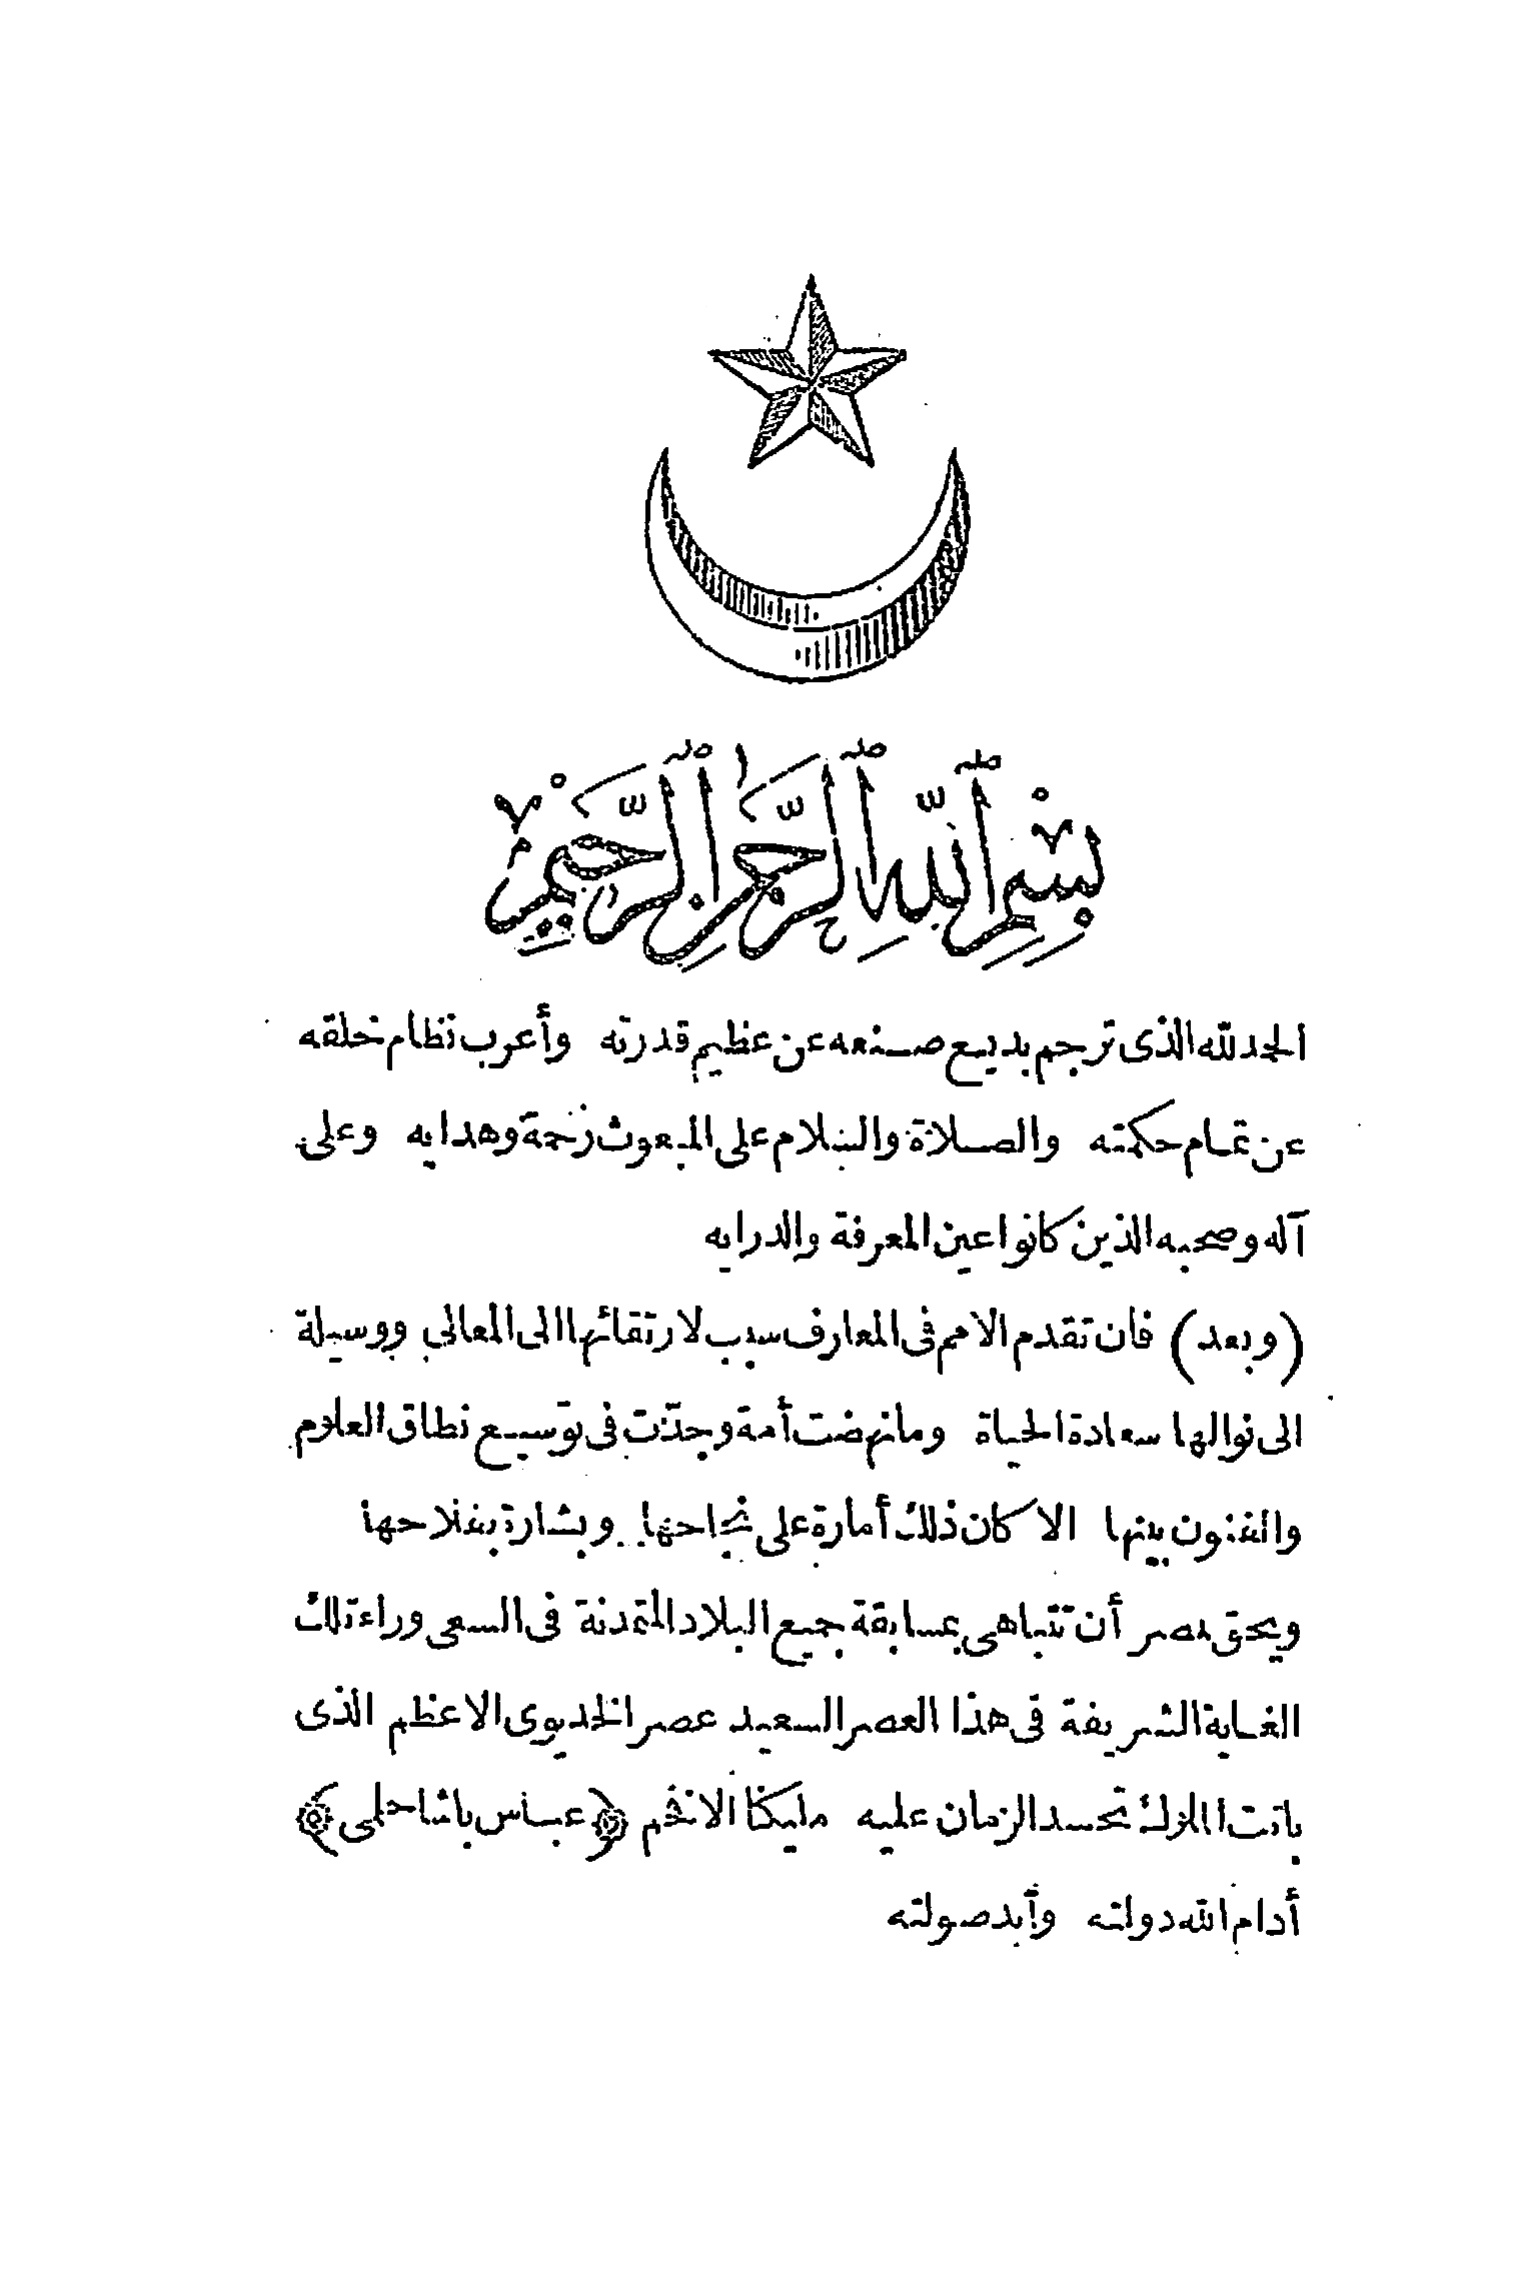 بِسْمِ ٱللَّهِ ٱلرَّحْمَٰنِ ٱلرَّحِيمِ
الحمد لله الذى ترجم بديع صنعه عن عظيم قدرته وأعرب نظام خلقه
عن تمام حكمته والصلاة والسلام على المبعوث رحمة وهدايه وعلى
آله وصحبه الذين كانوا عين المعرفة والدرايه
(وبعد) فان تقدم الامم فى المعارف سبب لارتقائها الى المعالى ووسيلة
الى نوالها سعادة الحياة وما نهضت أمة وجدّت فى توسيع نطاق العلوم
والفنون بينها الا كان ذلك أمارة على نجاحها وبشارة بفلاحها
ويحق لمصر أن تتباهى بمسابقة جميع البلاد المتمدنة فى السعى وراء تلك
الغاية الشريفة فى هذا العصر السعيد عصر الخديوى الاعظم الذى
باتت الملوك تحسد الزمان عليه مليكنا الافخم ﴿عباس باشا حلمى﴾
أدام الله دولته وأيد صولته